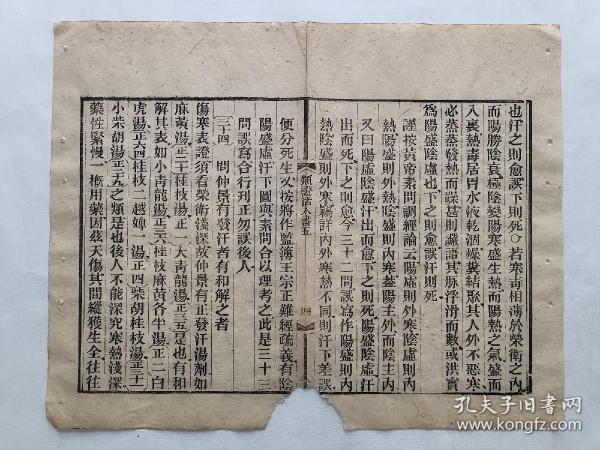 也汗之則愈誤下則死○若寒毒相薄於榮衛之內
而陽勝陰衰極陰變陽寒盛生熱而陽熱之氣盛而
入裏熱毒居胃水液乾涸燥糞結聚其人外不惡寒
必蒸蒸發熱而躁甚則譫語其脉浮滑而數或洪實
爲陽盛陰虛也下之則愈誤汗則死
謹按黃帝素問調經論云陽虛則外寒陰虛則內
熱陽盛則外熱陰盛則內寒蓋陽主外而陰主內
又曰陽虛陰盛汗出而愈下之則死陽盛陰虛汗
出而死下之則愈今三十二問誤寫作陽盛則內
熱陰盛則外寒竊詳內外寒熱不同則汗下差誤
類證活人書五
四
便分死生又按將作監簿王宗正難經疏義有陰
陽盛虛汗下圖與素問合以理考之此是三十三
問誤寫合行刋正勿誤後人
三十四 問仲景有發汗者有和解之者
傷寒表證須看榮衛淺深故仲景有正發汗湯劑如
麻黃湯正二十桂枝湯正一大靑龍湯正三五是也有和
解其表如小靑龍湯正三六桂枝麻黃各半湯正二白
虎湯正六四桂枝二越婢一湯正四柴胡桂枝湯正三十
小柴胡湯正二五之類是也後人不能深究寒熱淺深
藥性緊慢一槪用藥因茲夭傷其間縱獲生全往往
孔夫子旧书网
www.kongfz.com